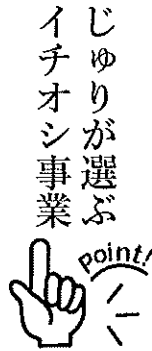 じゅりが選ぶ
イチオシ事業
Point!